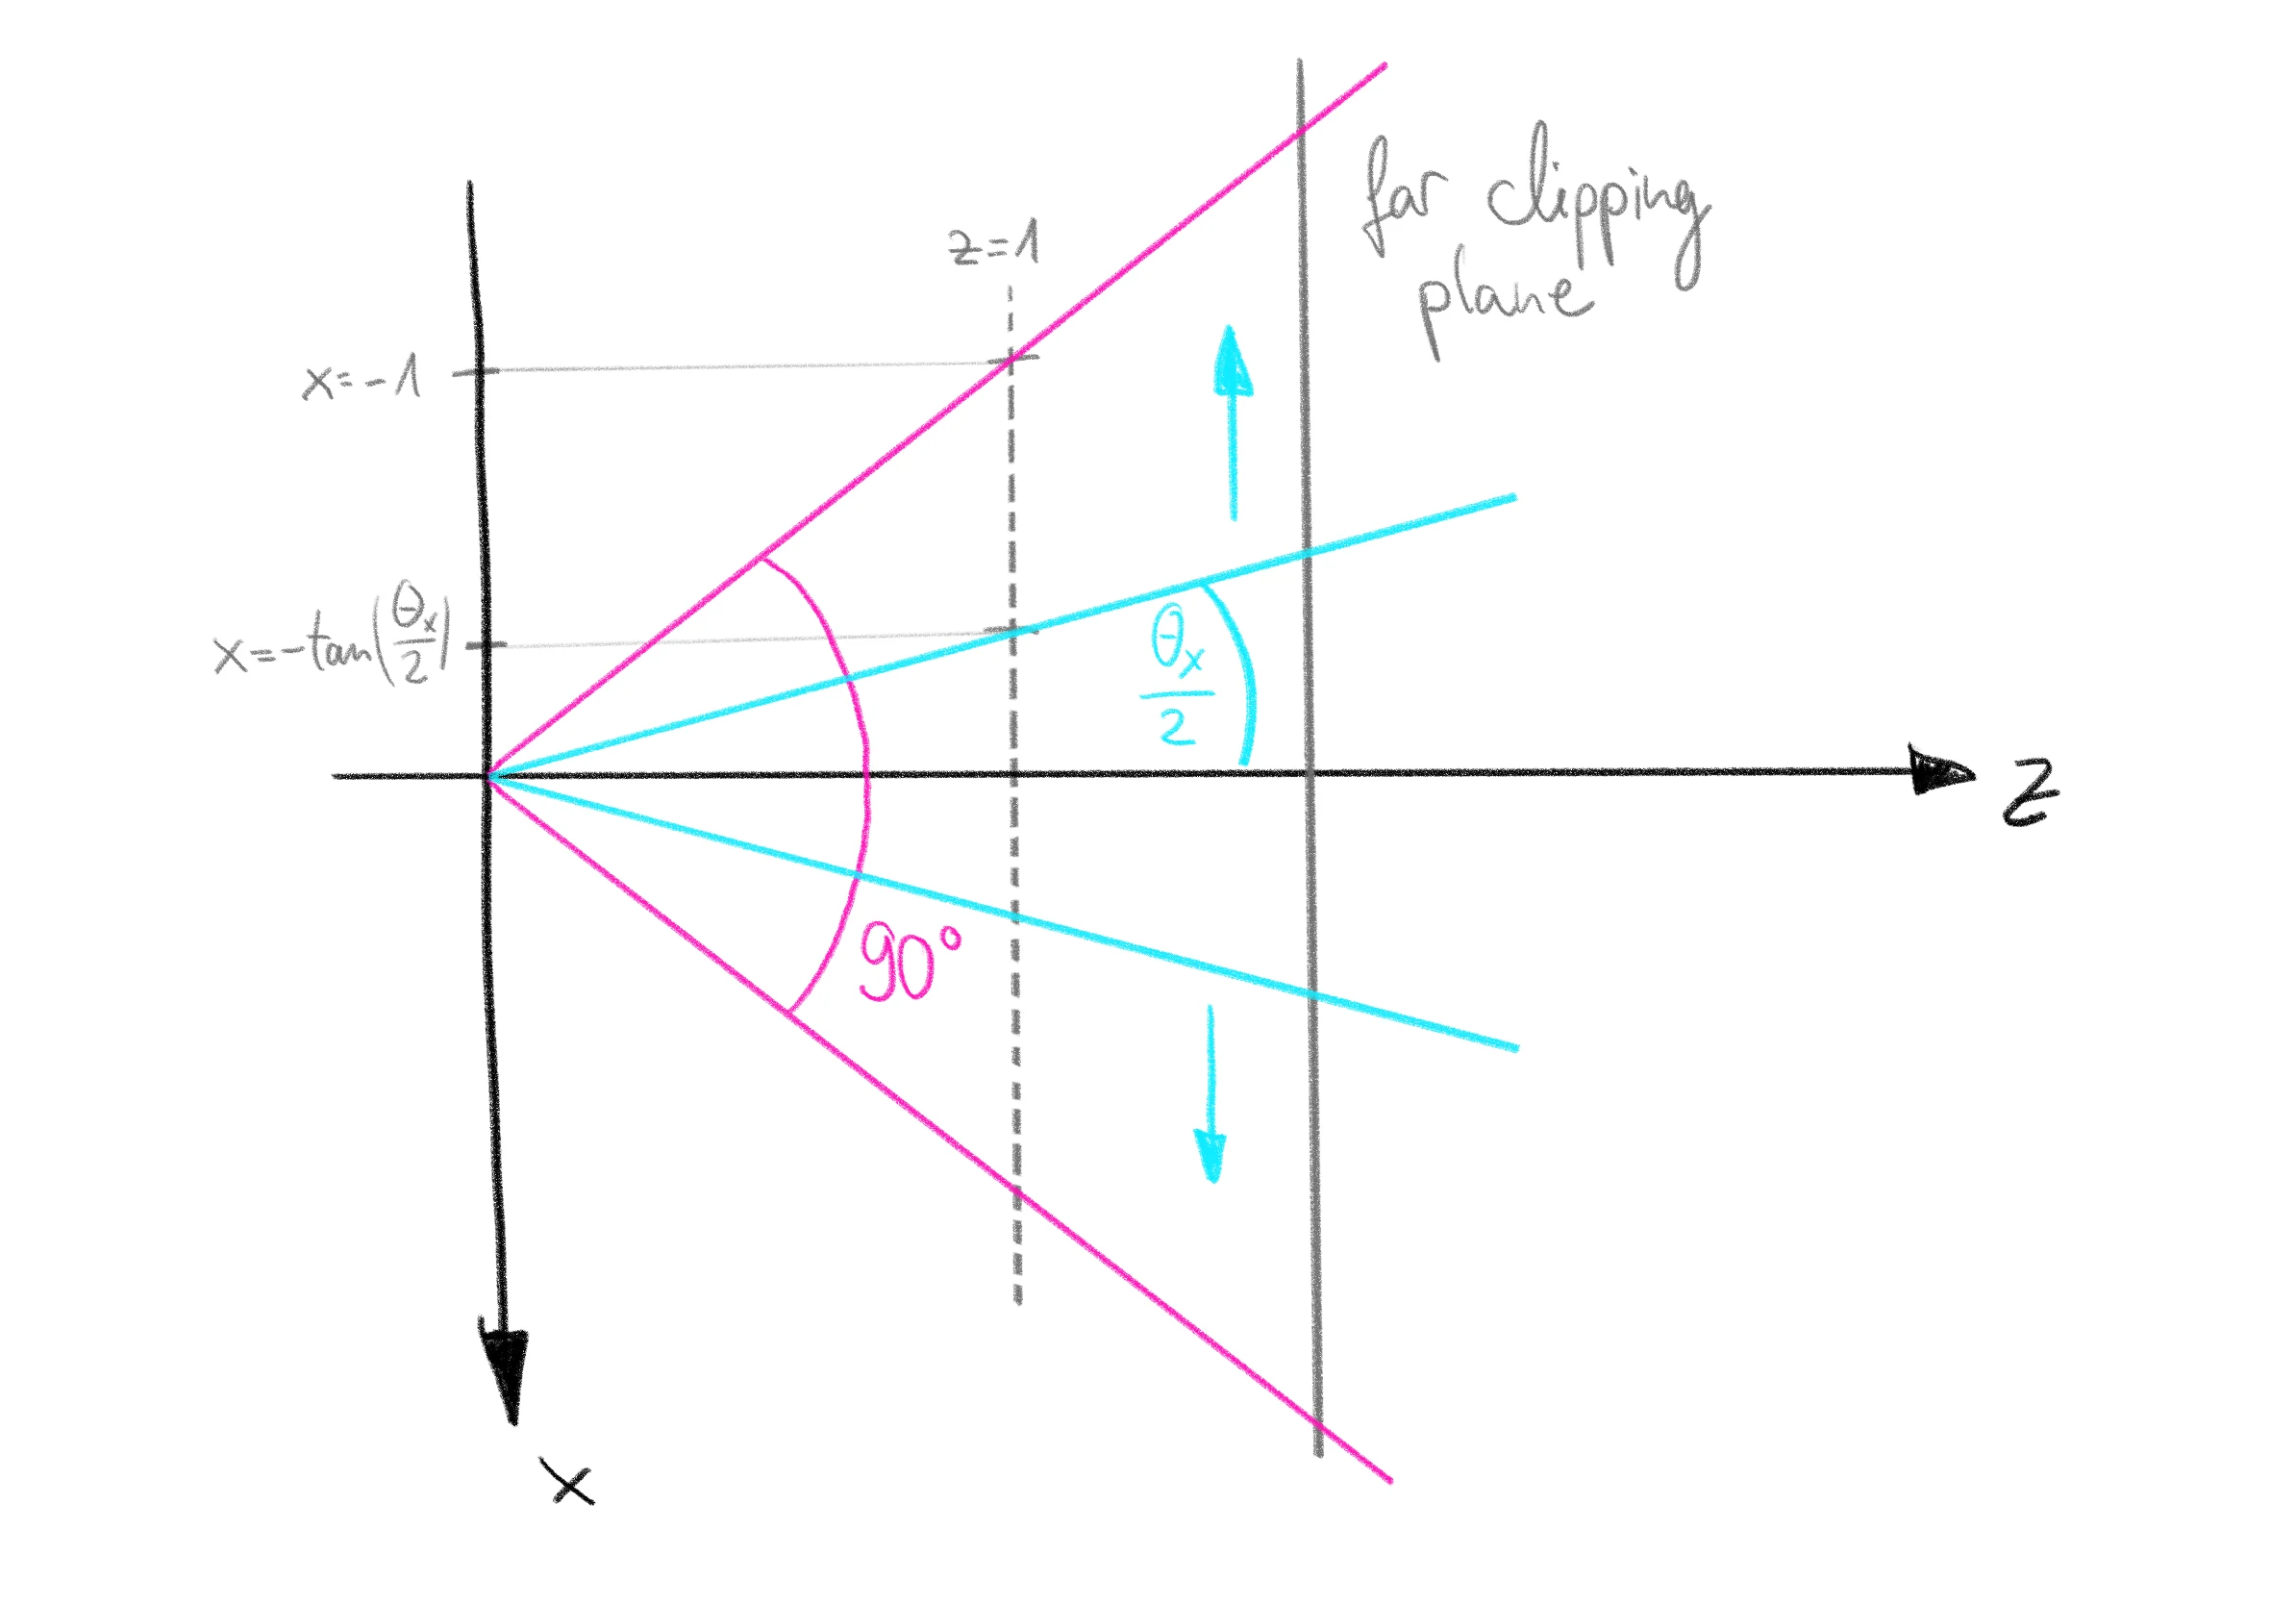 far clipping
plane
z=1
x=-1
x=-tan(θx/2)
θx/2
z
90°
x